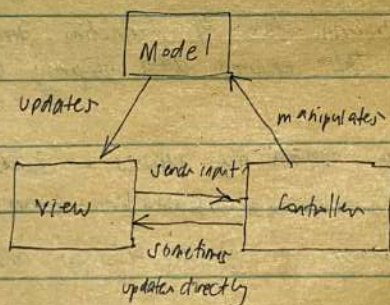 Model
updates
manipulates
sends input
view
Controller
sometimes
updates directly